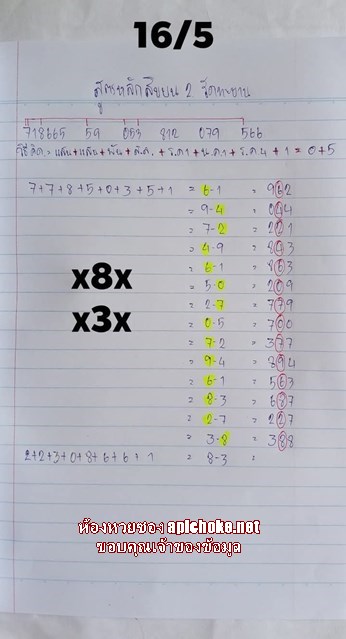 16/5
สูตรหลักสิบบน 2 รูดทะยาน
718665 59 053 812 079 566
วิธีคิด = แสน + แสน + พัน + ล.ต. + ร.ต1 + น.ต1 + ร.ต4 + 1 = 0+5
7+7+8+5+0+3+5+1 = 6-1 = 962
= 9-4 = 044
= 7-2 = 221
= 4-9 = 843
= 6-1 = 863
= 5-0 = 209
= 2-7 = 779
x8x
= 0-5 = 700
x3x
= 7-2 = 377
= 9-4 = 894
= 6-1 = 563
= 8-3 = 687
= 2-7 = 227
= 3-8 = 388
2+2+3+0+8+6+6+1 = 8-3 =
ห้องหวยซอง apichoke.net
ขอบคุณเจ้าของข้อมูล